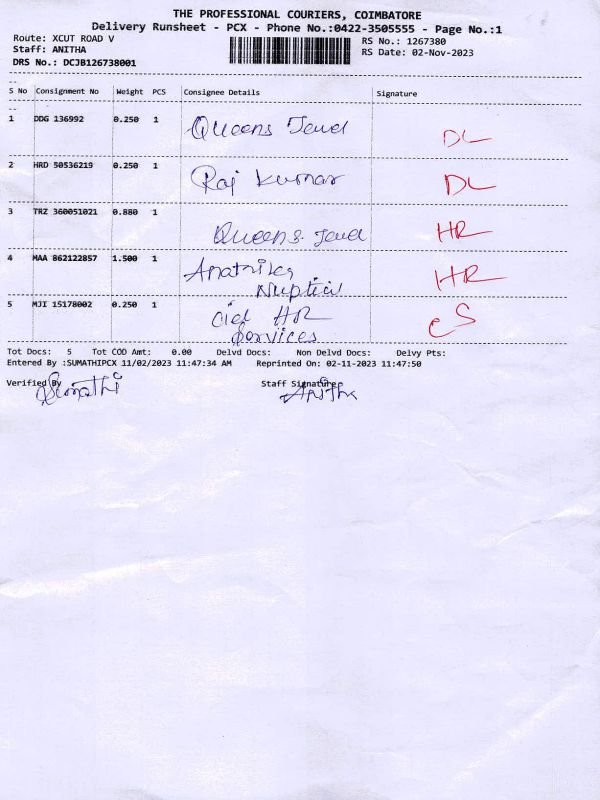 THE PROFESSIONAL COURIERS, COIMBATORE
Delivery Runsheet - PCX - Phone No.:0422-3505555 - Page No.:1
Route: XCUT ROAD V RS No.: 1267380
Staff: ANITHA RS Date: 02-Nov-2023
DRS No.: DCJB126738001
S No Consignment No Weight PCS Consignee Details Signature
1 DDG 136992 0.250 1 Queens Jewel DL
2 HRD 50536219 0.250 1 Raj Kumar DL
3 TRZ 360051021 0.880 1 Queens Jewel HR
4 MAA 862122857 1.500 1 HR
5 MJI 15178002 0.250 1 HR CS
Services
Tot Docs: 5 Tot COD Amt: 0.00 Delvd Docs: Non Delvd Docs: Delvy Pts:
Entered By :SUMATHIPCX 11/02/2023 11:47:34 AM Reprinted On: 02-11-2023 11:47:50
Verified By Staff Signature
Sumathi Anitha